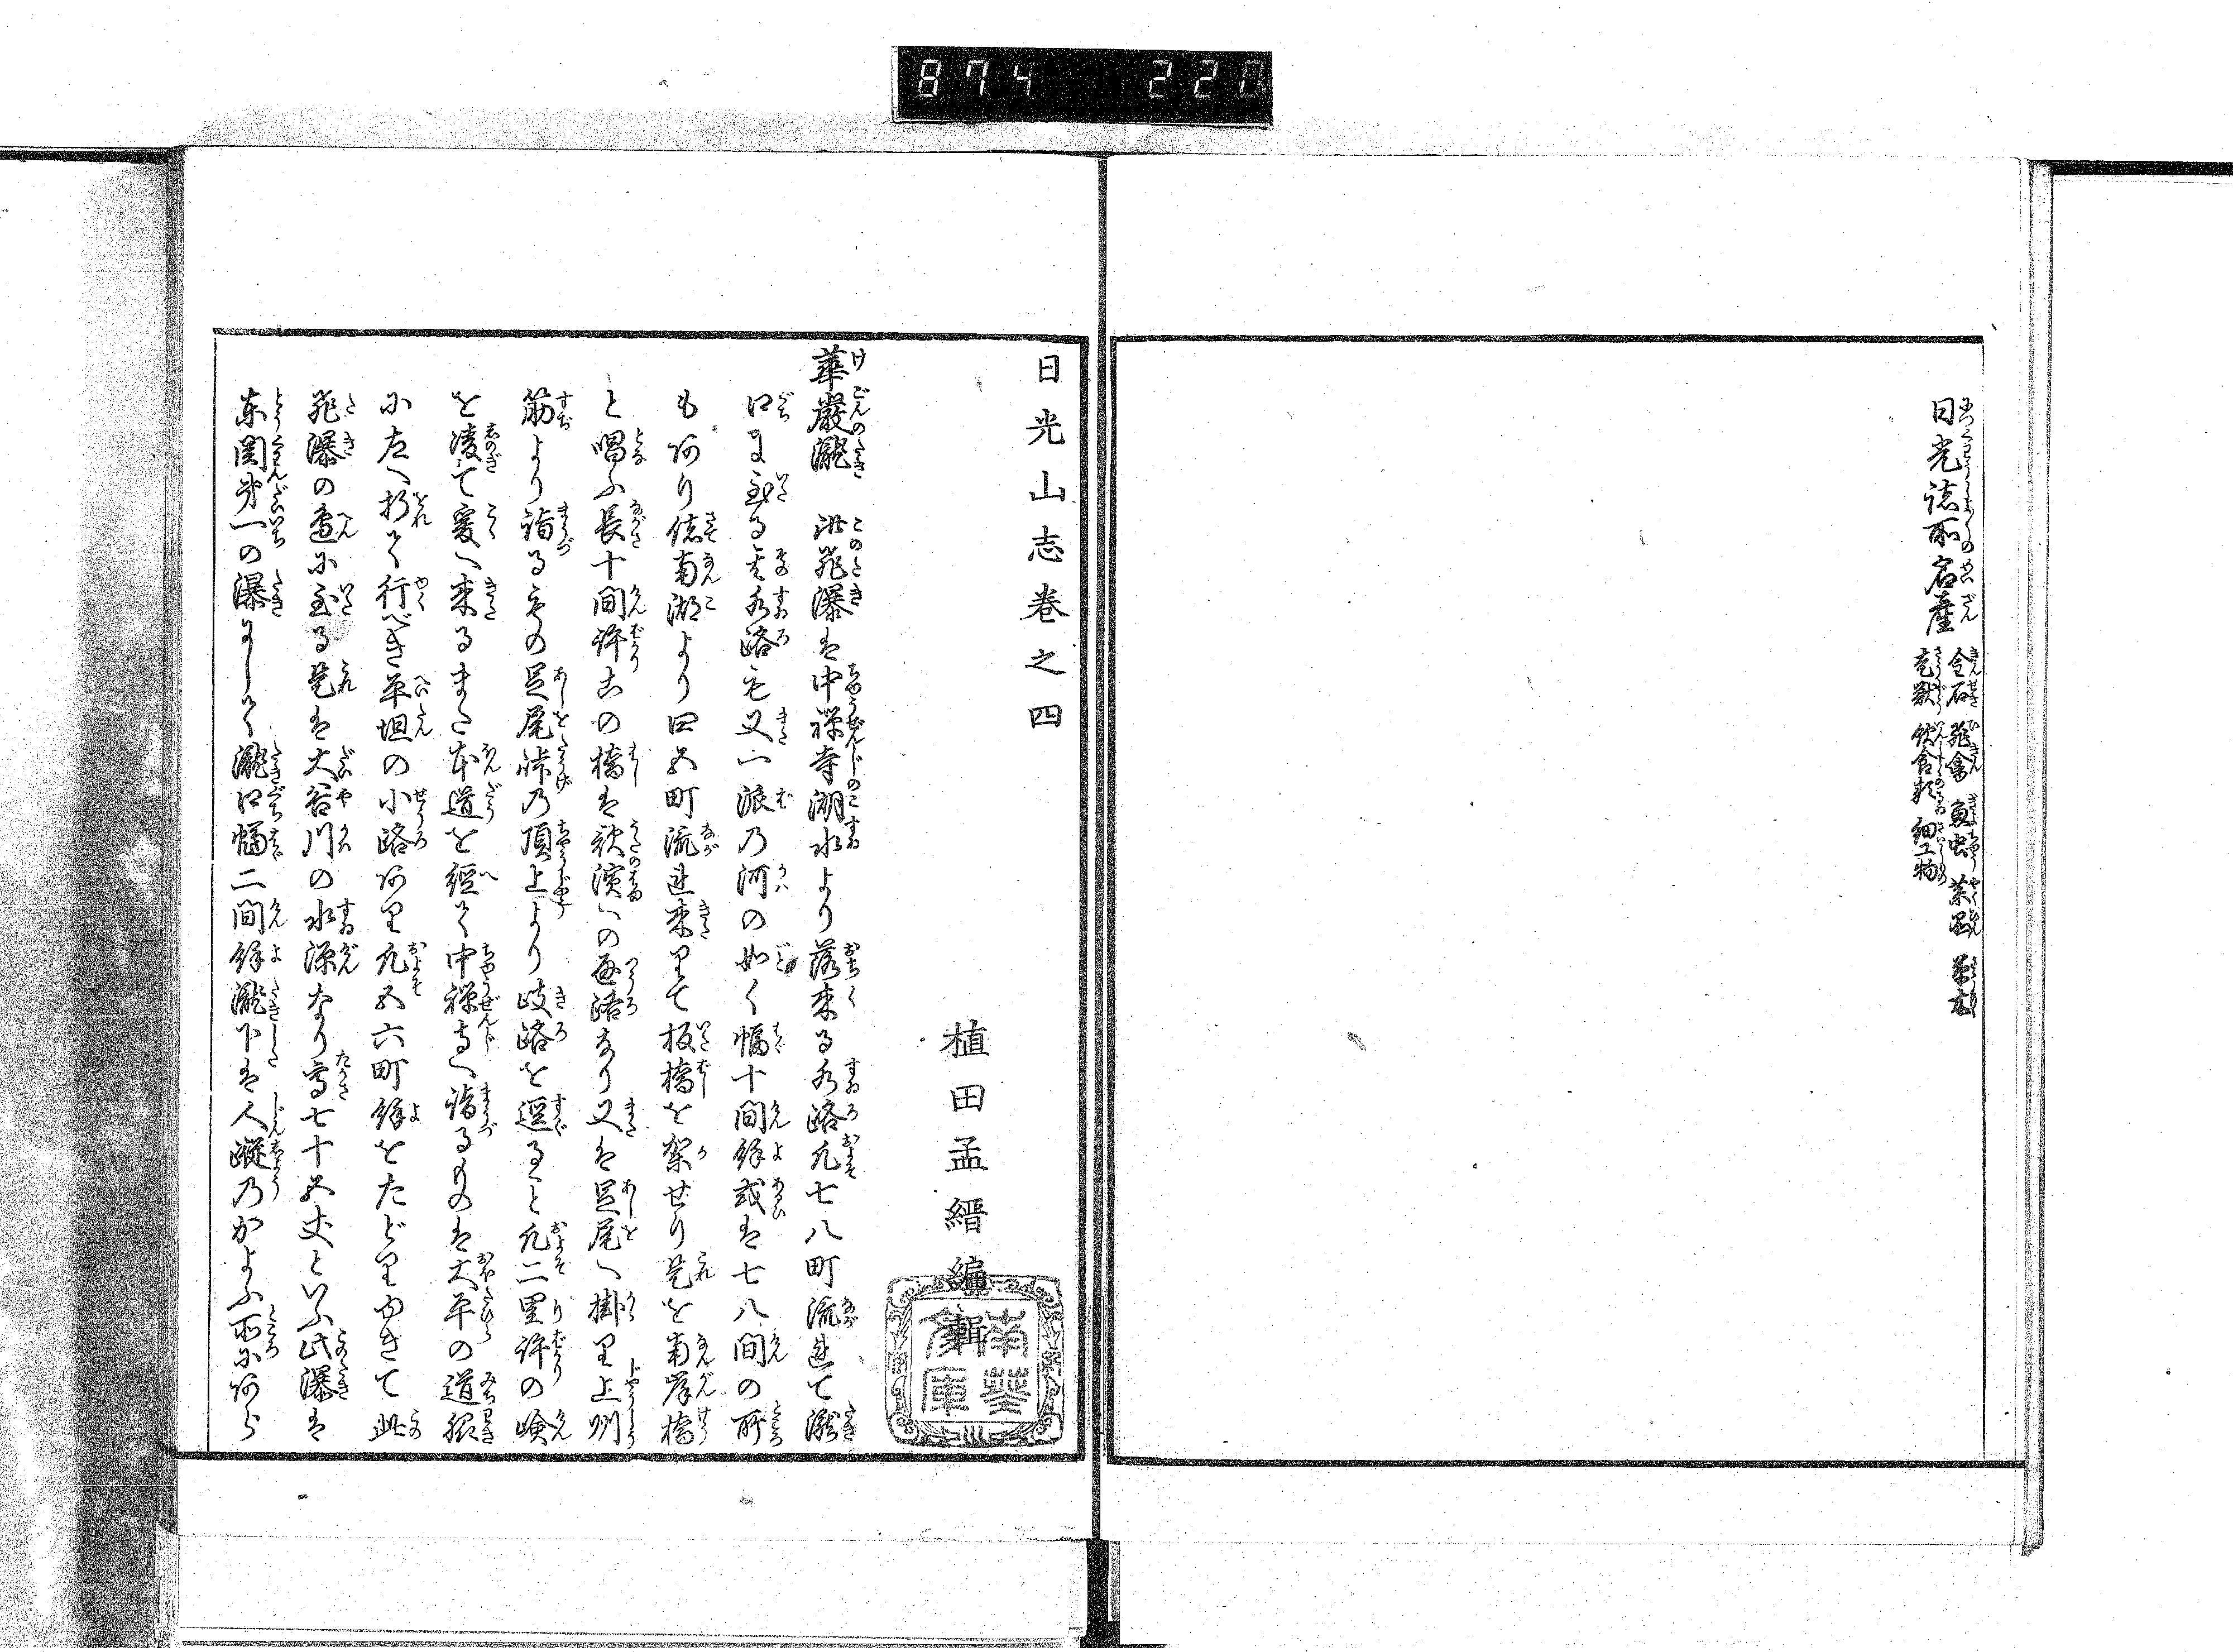 874 220
日光諸所名産
金石 飛禽 魚虫 薬品 草木
走獣 飲食類 細工物
日光山志巻之四
植田孟縉編輯
華厳瀧 此飛瀑は中禅寺湖水より落来る水路凡七八町流述て瀧
口に至る其水路も又一派の河の如く幅十間餘或は七八間の所
もあり偖南湖より四五町流述来りて板橋を架せり是を南岸橋
と唱ふ長十間許この橋は歌濱への通路なり又は足尾へ掛り上州
筋より詣るもの足尾峠の頂上より岐路を逕ること凡二里許の嶮
を凌て爰へ来るまた本道を經て中禅寺へ詣るものは大平の道服
に左へ折て行べき平坦の小路あり凡五六町餘をたどりゆきて此
飛瀑の邊に至る是は大谷川の水源なり高七十五丈といふ此瀑は
東関第一の瀑にして瀧口幅二間餘瀧下は人蹤のかよふ所にあら
南葵文庫